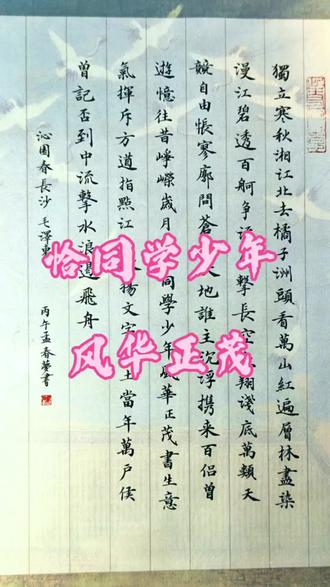 獨立寒秋湘江北去橘子洲頭看萬山紅遍層林盡染
漫江碧透百舸争 擊長空 翔淺底萬類天
競自由悵寥廓問蒼 大地誰主沉浮携来百侣曾
遊憶往昔崢嶸歲月 同學少年風華正茂書生意
氣揮斥方遒指點江 揚文字 土當年萬户侯
曾記否到中流擊水浪遏飛舟
沁園春長沙 毛澤東
丙午孟春夢書
恰同学少年
风华正茂